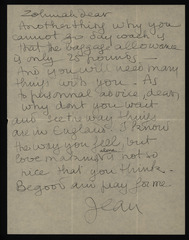 dear
Another thing why you
cannot go day coach is
that the baggage allowance
is only 25 pounds —
And you will need many
things with you — As
to personal advice, dear,
why don't you wait
and see the way things
are in England. I know
the way you feel, but
love making is not so
nice that you think —
Be good and pray for me
Jean